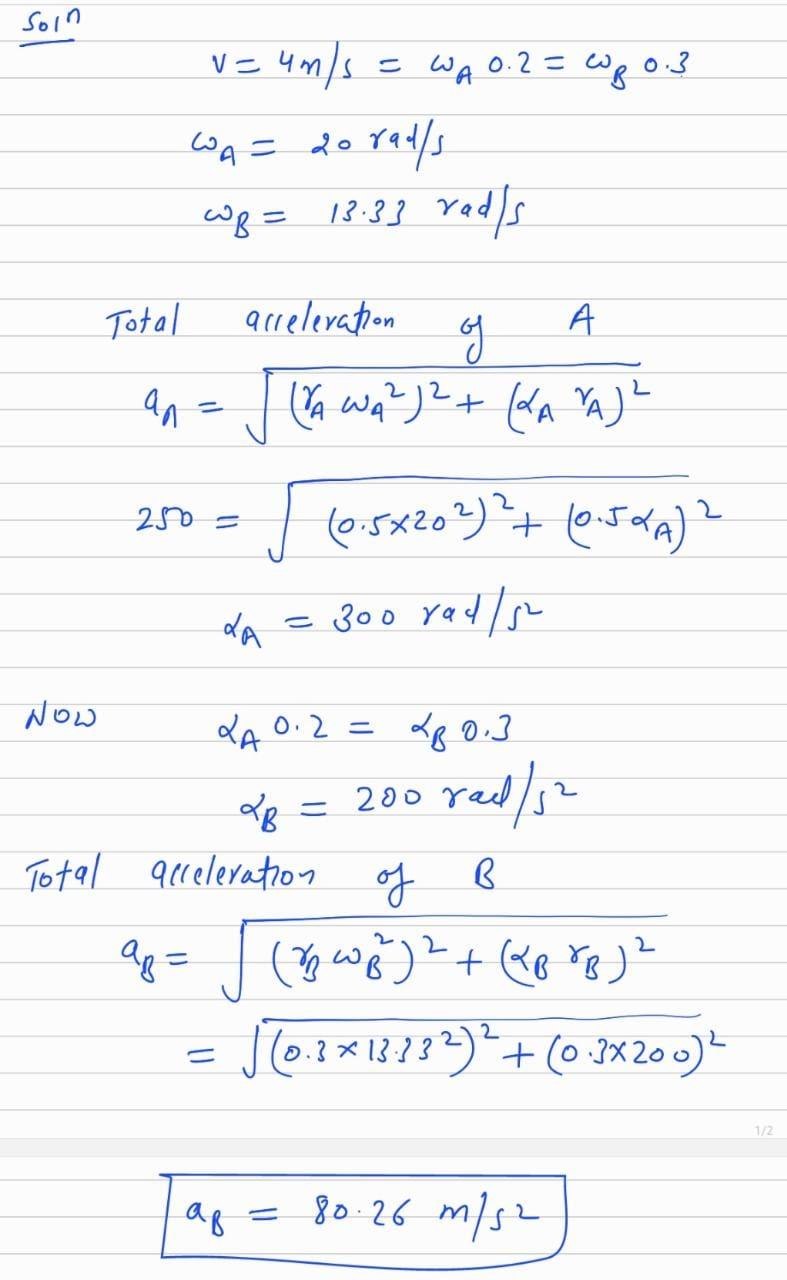 Soln
v = 4 m/s = ω_A 0.2 = ω_B 0.3
ω_A = 20 rad/s
ω_B = 13.33 rad/s
Total acceleration of A
a_A = √((r_A ω_A²)² + (α_A r_A)²)
250 = √((0.5×20²)² + (0.5α_A)²)
α_A = 300 rad/s²
Now α_A 0.2 = α_B 0.3
α_B = 200 rad/s²
Total acceleration of B
a_B = √((r_B ω_B²)² + (α_B r_B)²)
= √((0.3×13.33²)² + (0.3×200)²)
1/2
a_B = 80.26 m/s²